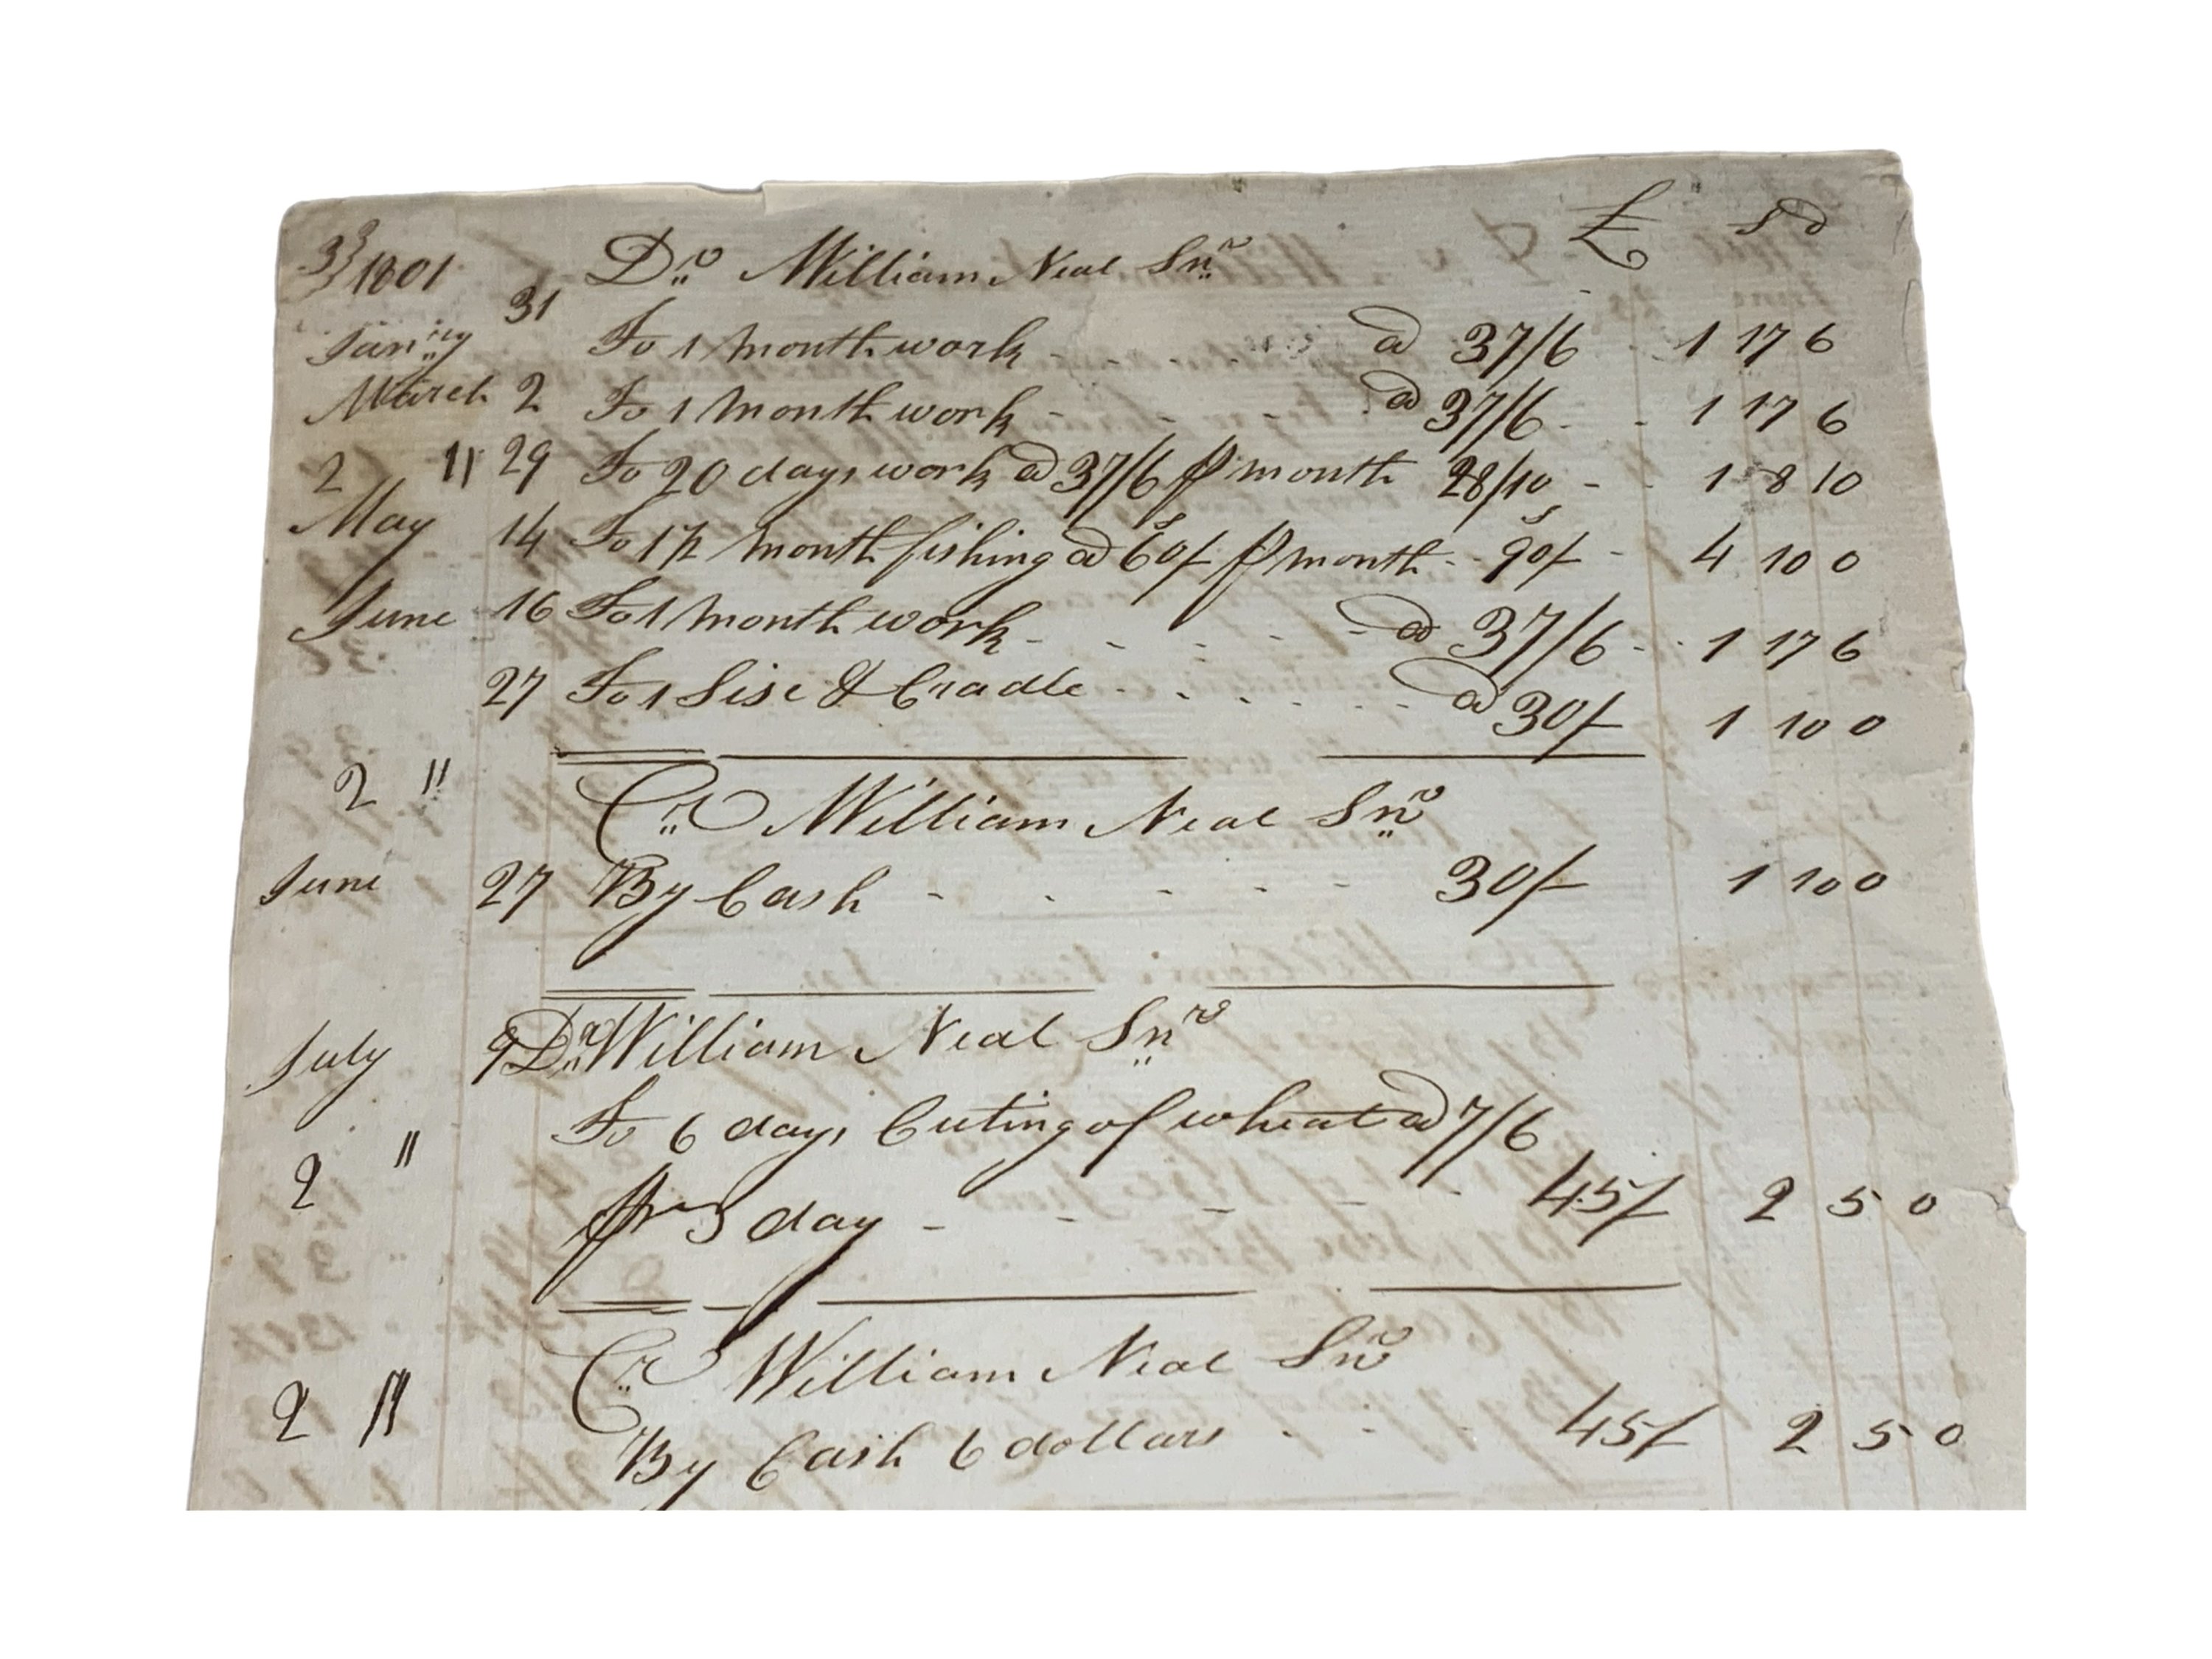 33 1801 Dr William Neal Snr £ s d
Janry 31 To 1 month work ad 37/6 1 17 6
March 2 To 1 month work ad 37/6 1 17 6
2 11 29 To 20 days work ad 37/6 P month 28/10 1 8 10
May 14 To 1 1/2 month fishing ad 60s/ P month 90s/ 4 10 0
June 16 To 1 month work ad 37/6 1 17 6
27 To 1 Sise & Cradle ad 30/ 1 10 0
2 " Cr William Neal Snr
June 27 By Cash 30/ 1 10 0
July 9 Dr William Neal Snr
To 6 days Cuting of wheat ad 7/6
2 " Pr day 45/ 2 5 0
Cr William Neal Snr
2 " By Cash 6 dollars 45/ 2 5 0